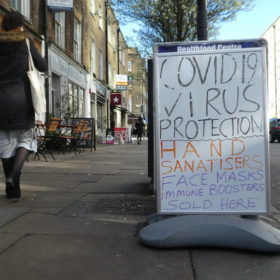 Healthfood Centre
COVID19
VIRUS
PROTECTION
HAND
SANATISERS
FACE MASKS
IMMUNE BOOSTERS
SOLD HERE